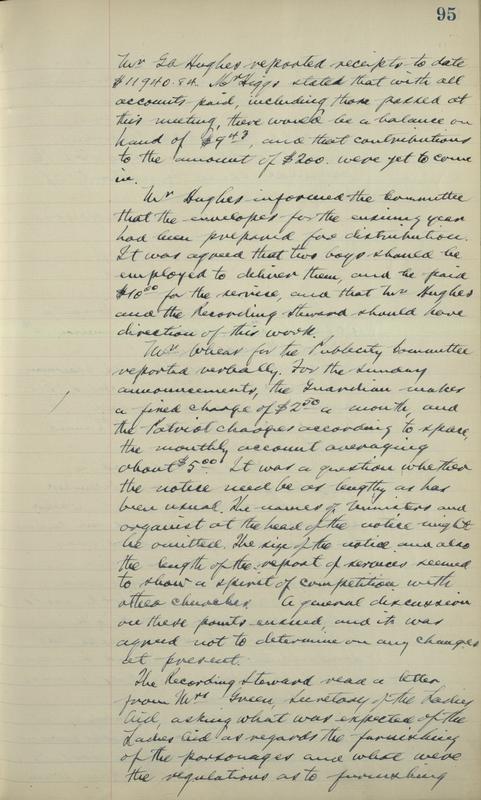 95
Mr Geo Hughes reported receipts to date
$11940.84. Mr Higgs stated that with all
accounts paid, including those passed at
this meeting, there would be a balance on
hand of $9.43, and that contributions
to the amount of $200. were yet to come
in.
Mr Hughes informed the Committee
that the envelopes for the ensuing year
had been prepared for distribution.
It was agreed that two boys should be
employed to deliver them, and be paid
$10.00 for the service, and that Mr Hughes
and the Recording Steward should have
direction of this work.
Mr Whear for the Publicity Committee
reported verbally. For the Sunday
announcements, the Guardian makes
a fixed charge of $2.50 a month, and
the Patriot charges according to space,
the monthly account averaging
about $5.00. It was a question whether
the notice need be as lengthy as has
been usual. The names of ministers and
organist at the head of the notice might
be omitted. The size of the notice and also
the length of the report of services seemed
to show a spirit of competition with
other churches. A general discussion
on these points ensued, and it was
agreed not to determine on any changes
at present.
The Recording Steward read a letter
from Mrs Green, Secretary of the Ladies
Aid, asking what was expected of the
Ladies Aid as regards the furnishing
of the parsonages and what were
the regulations as to furnishing